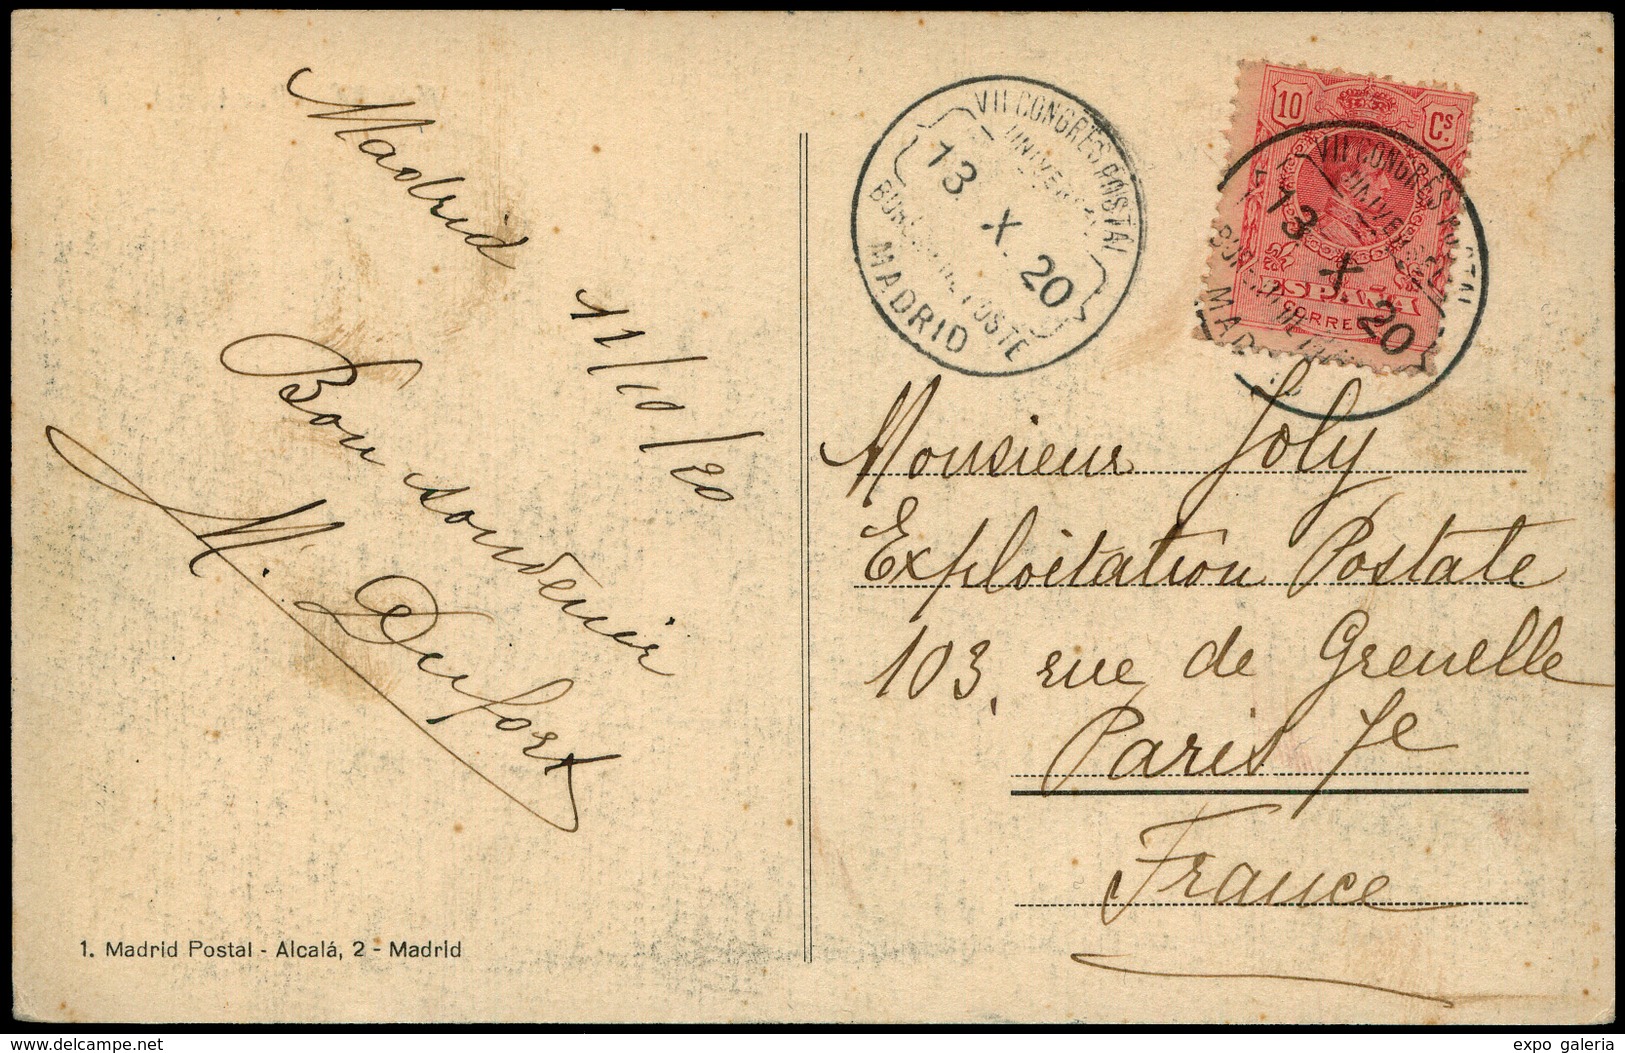 Madrid 11/10/20
Bon souvenir
M. Dufort
1. Madrid Postal - Alcalá, 2 - Madrid
VII CONGRÈS POSTAL
UNIVERSEL
13 X 20
BUREAU DE POSTE
MADRID
10 Cs.
ESPAÑA
CORREOS
VII CONGRÈS POSTAL
13 X 20
Monsieur Joly
Exploitation Postale
103, rue de Grenelle
Paris 7e
France
www.delcampe.net
expo galeria